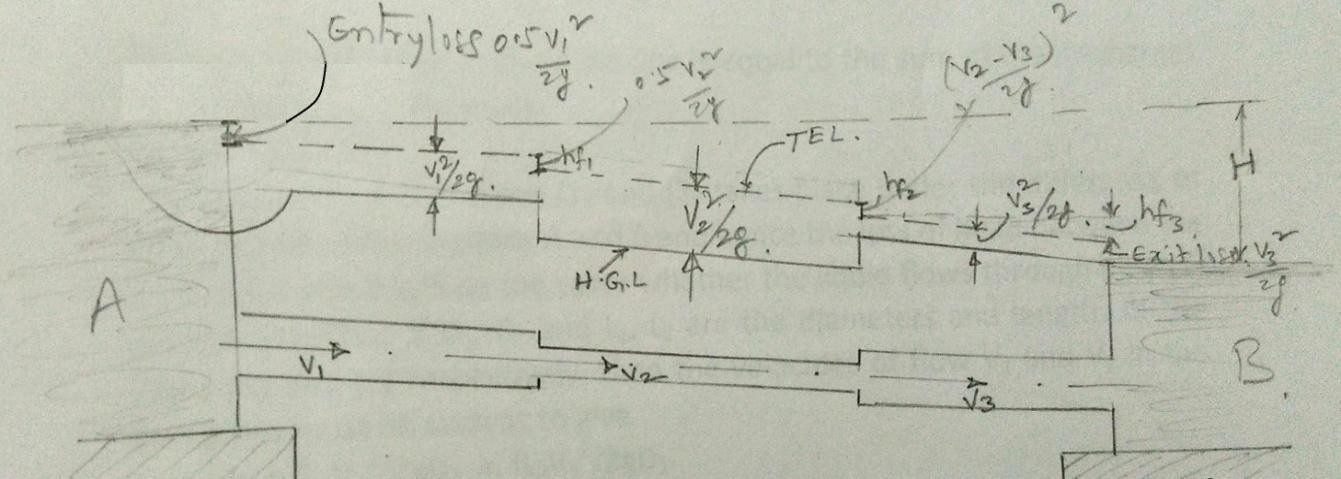 Entry loss 0.5 V₁²/2g.
0.5 V₂²/2g
(V₂-V₃)²/2g.
TEL.
H
V₁²/2g.
hf₁
V₂²/2g.
hf₂
V₃²/2g.
hf₃
Exit loss V₃²/2g
H.G.L
A
B
V₁
V₂
V₃